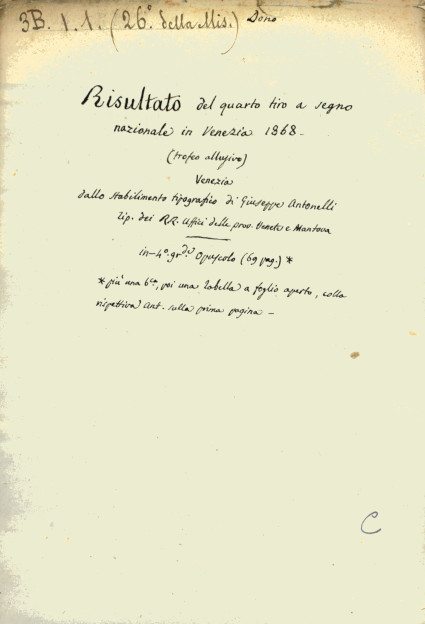 3B. 1. 1. (26ª della Mis.) Dono
Risultato del quarto tiro a segno
nazionale in Venezia 1868 -
(trofeo allusivo)
Venezia
dallo stabilimento tipografico di Giuseppe Antonelli
Tip. dei RR. Uffici delle prov. Venete e Mantova
in-4º. gr.de Opuscolo (69 pag.) *
* più una 6ta, poi una Tabella a foglio aperto, colla
rispettiva Ant. sulla prima pagina -
C